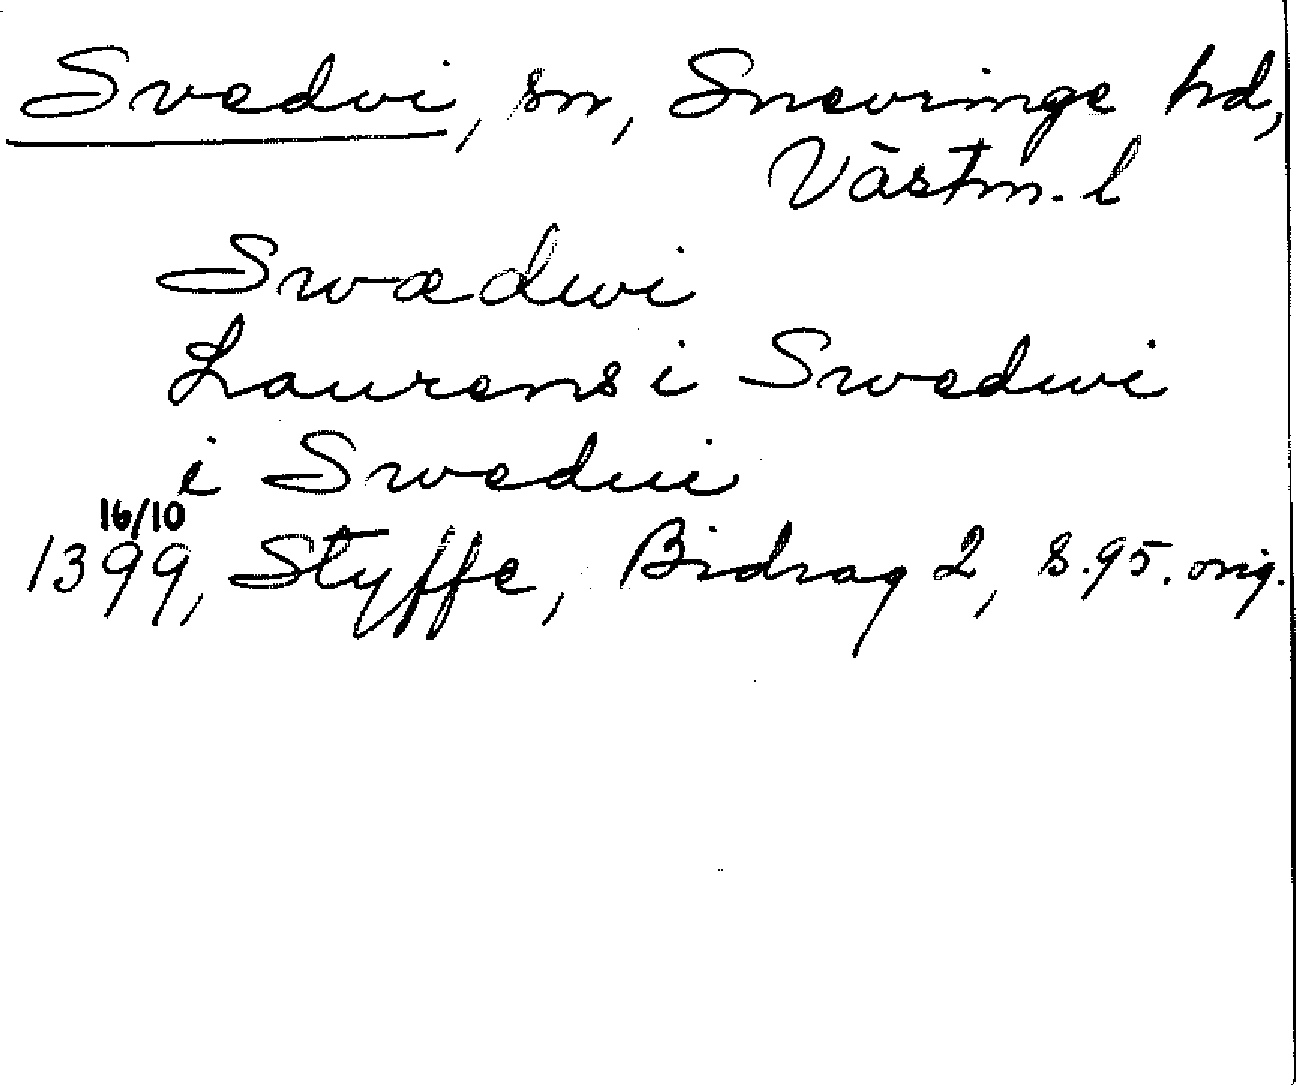 Svedvi, sn, Snevringe hd,
Västm. l
Swædwi
Laurens i Swedwi
i Swedwi
16/10
1399, Styffe, Bidrag 2, s. 95. orig.